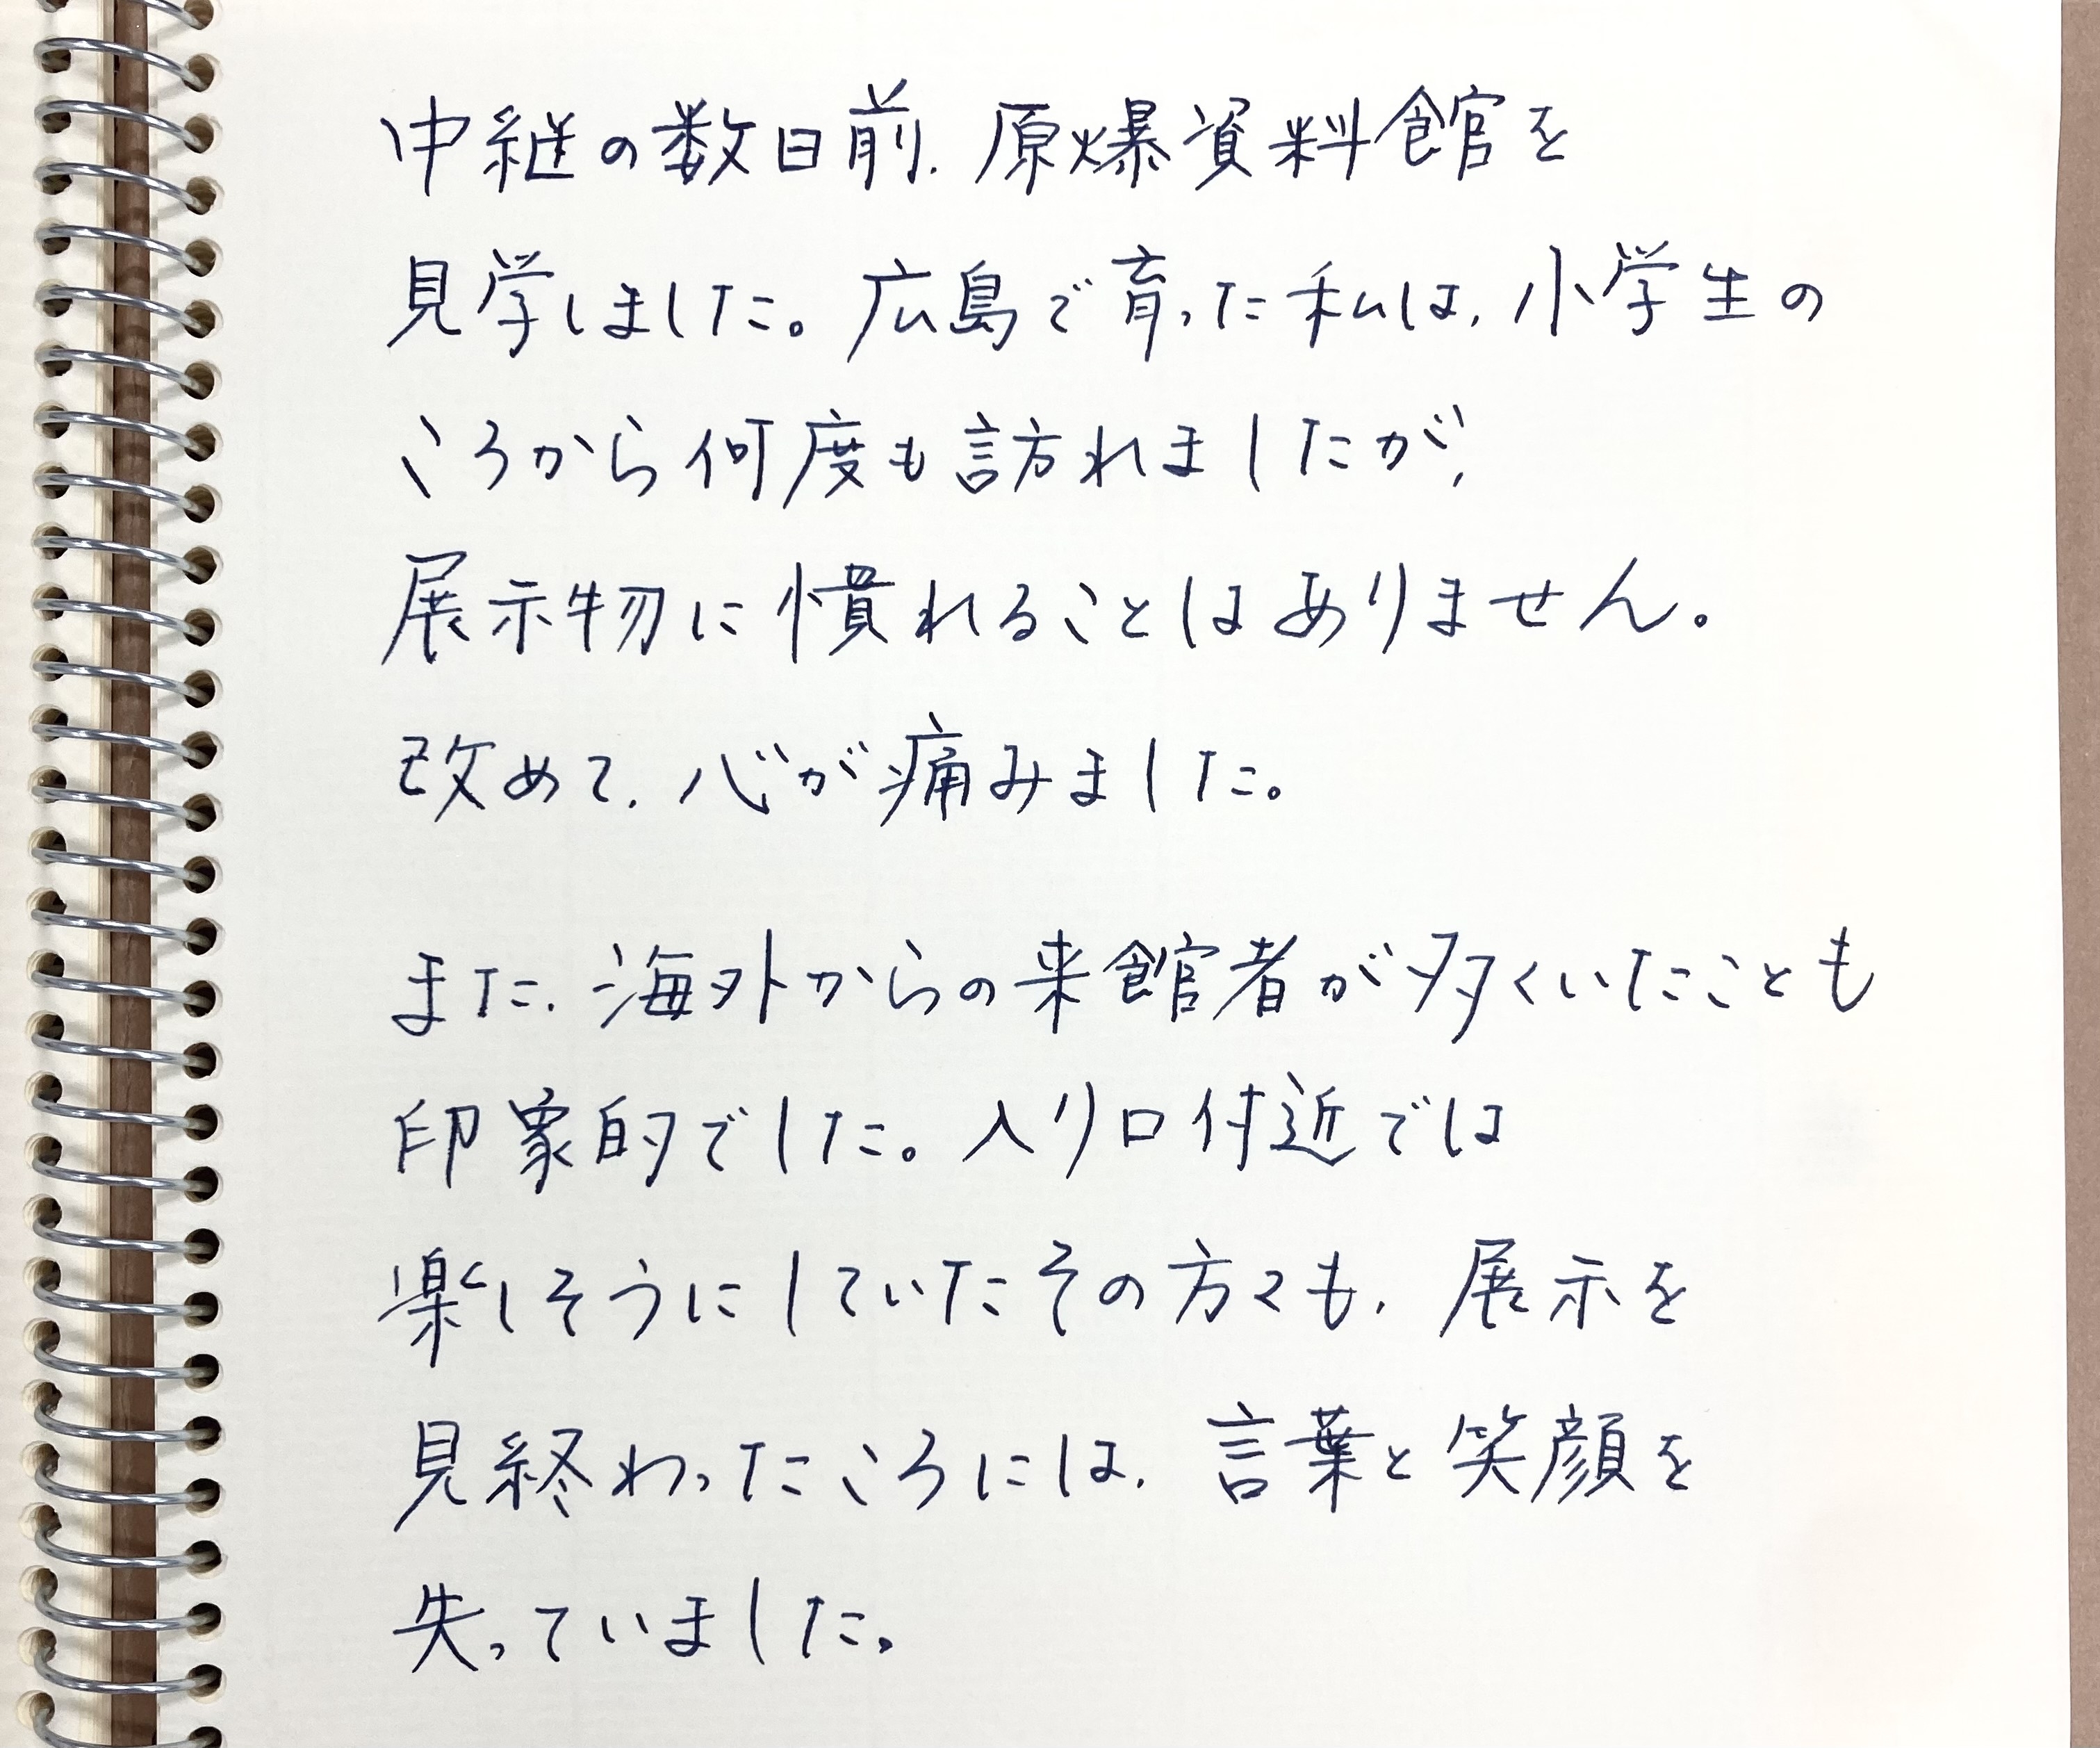 中継の数日前、原爆資料館を
見学しました。広島で育った私は、小学生の
ころから何度も訪れましたが、
展示物に慣れることはありません。
改めて、心が痛みました。
また、海外からの来館者が多くいたことも
印象的でした。入り口付近では
楽しそうにしていたその方々も、展示を
見終わったころには、言葉と笑顔を
失っていました。